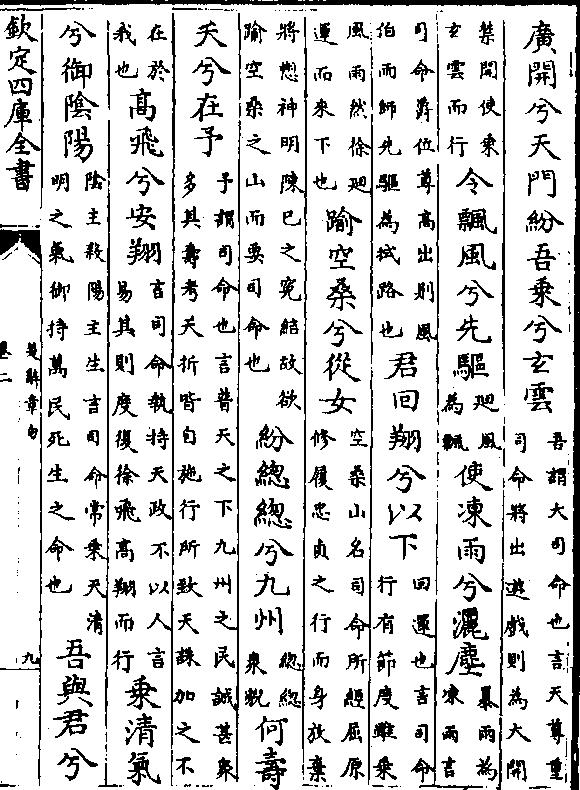 廣開兮天門紛吾乘兮玄雲
吾謂大司命也言天尊重
司命將出遊戲則為大開
禁開使乘
玄雲而行
令飄風兮先驅
廻風
為飄
使凍雨兮灑塵
暴雨為
凍雨言
司命爵位尊高出則風
伯雨師先驅為拭路也
君回翔兮以下
回運也言司命
行有節度雖乘
風雨然徐廻
運而來下也
踰空桑兮從女
空桑山名司命所經屈原
修履忠貞之行而身放棄
將愬神明陳巳之寃結故欲
踰空桑之山而要司命也
紛總總兮九州
總總
衆貌
何壽
夭兮在予
予謂司命也言普天之下九州之民誠甚衆
多其壽考夭折皆自施行所致天誅加之不
在於
我也
高飛兮安翔
言司命執持天政不以人言
易其則度復徐飛高翔而行
乘清氣
兮御陰陽
陰主殺陽主生言司命常乘天清
明之氣御持萬民死生之命也
吾與君兮
欽定四庫全書
楚辭章句
卷二
九